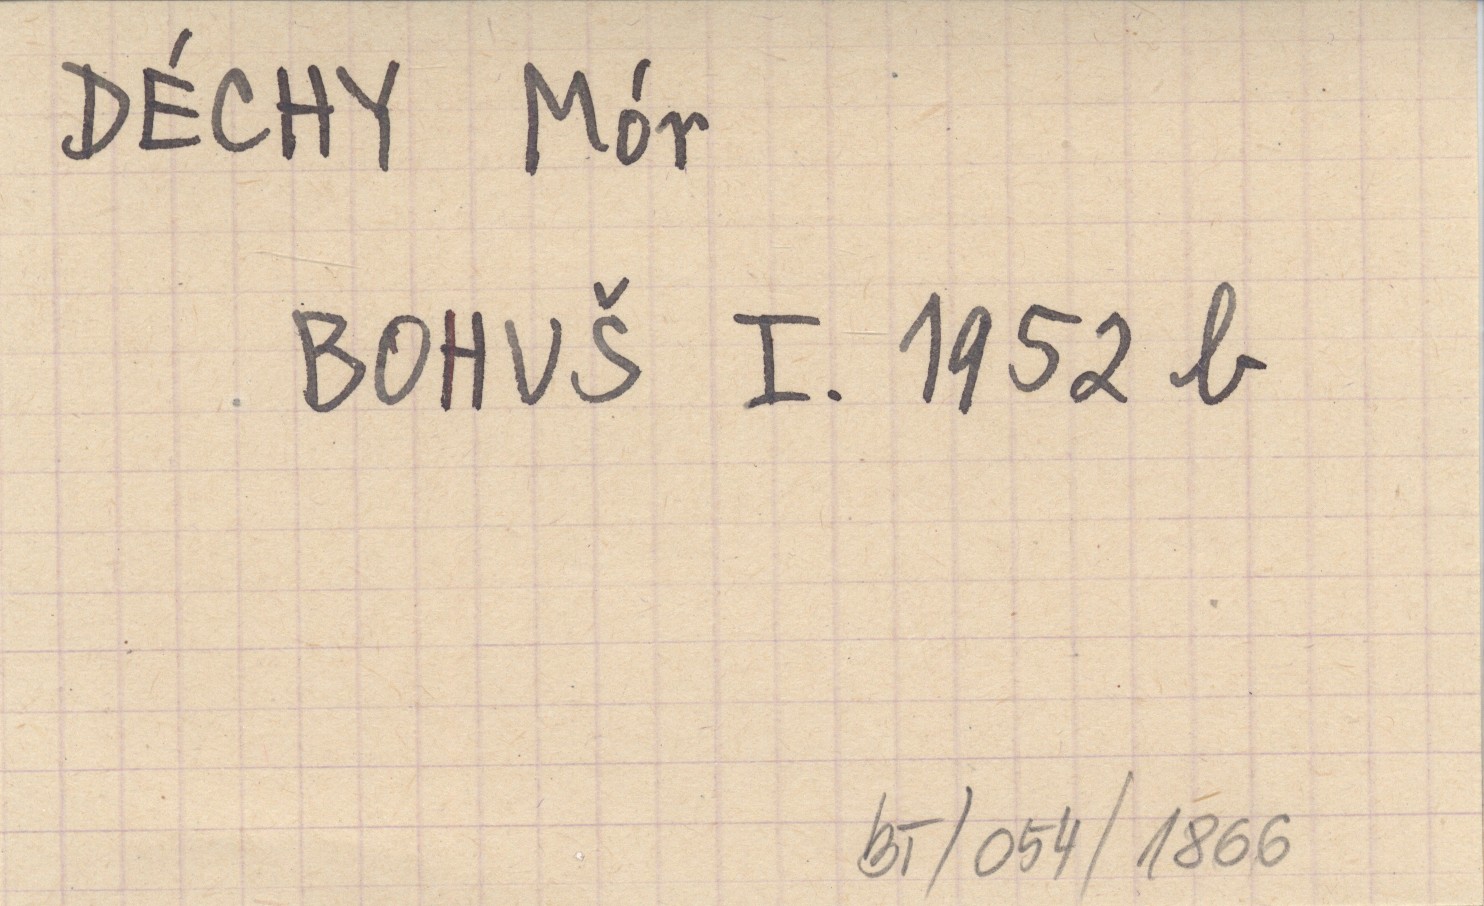 DÉCHY Mór
BOHUŠ I. 1952 b
BT/054/1866